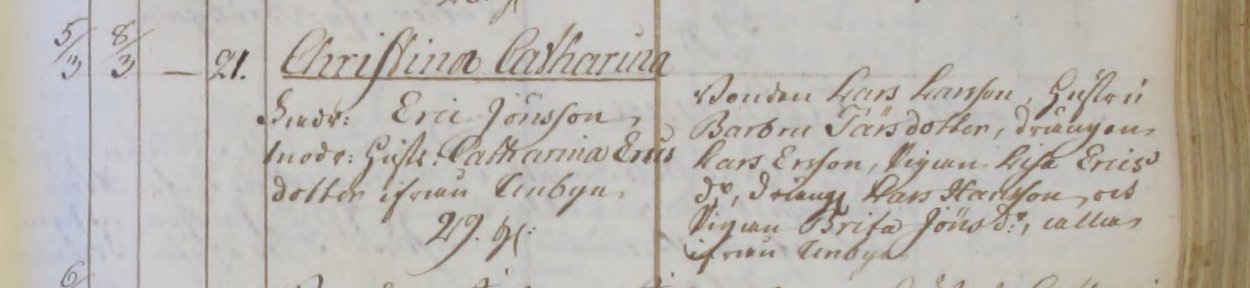 5/3 8/3 — 21. Christina Catharina
fadr: Eric Jönsson,
modr: Hust: Catharina Erics
dotter ifrån Urbyn
29. år.
Bonden Lars Larsson, Hustru
Barbru Pärsdotter, drängen
Lars Ersson, Pigan Lisa Erics
dr, dräng Lars Hansson, och
Pigan Brita Jöns Dr, alla
ifrån Urbyn
6